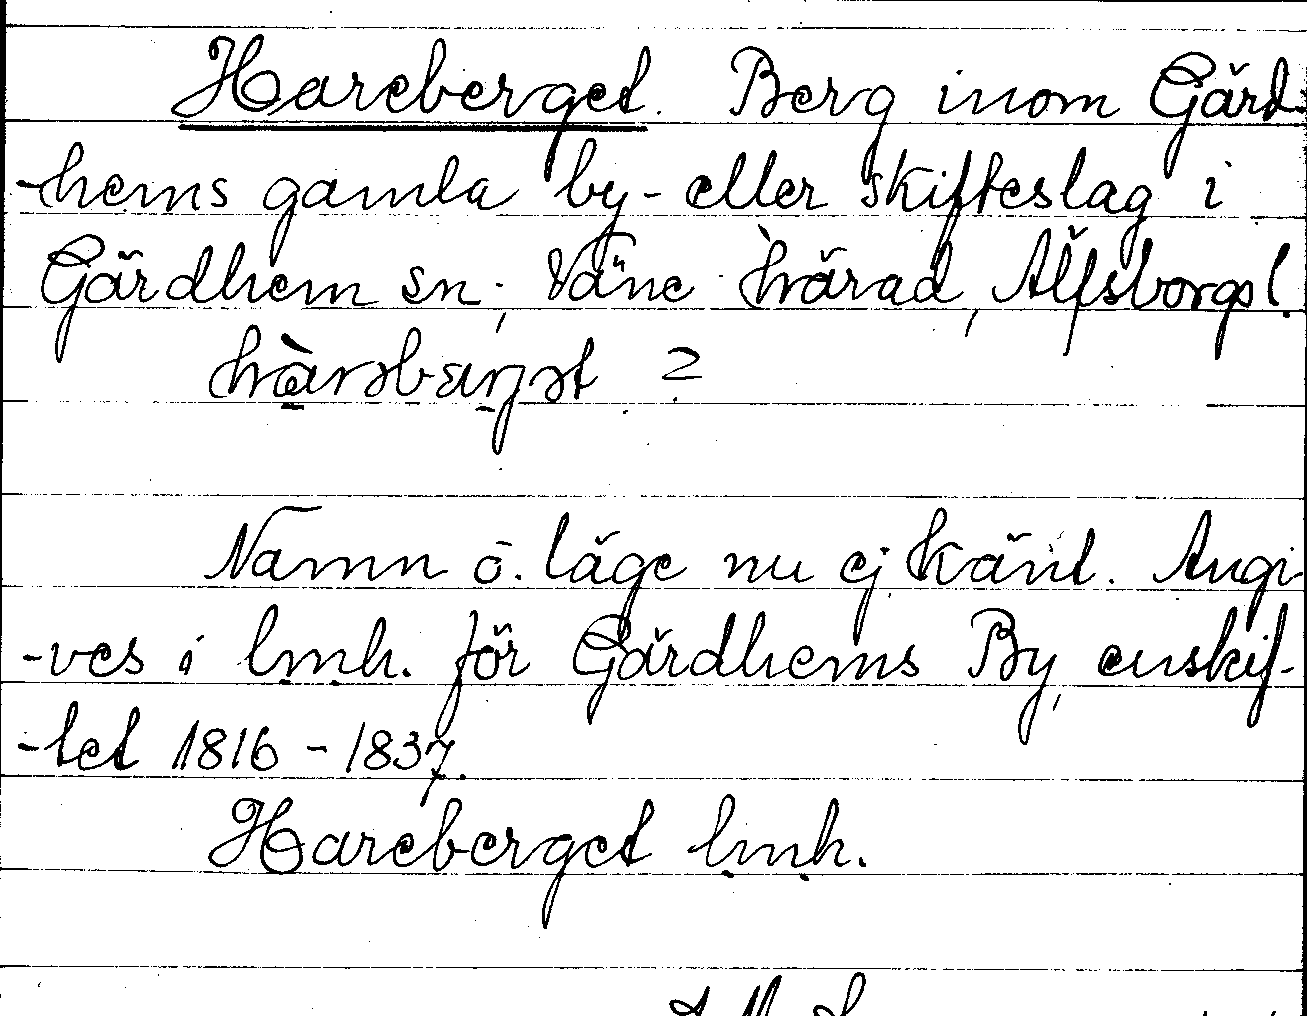 Hareberget. Berg inom Gärd-
-hems gamla by- eller skifteslag i
Gärdhem sn, Väne härad, Älfsborgs l.
Namn o. läge nu ej känt. Angi-
-ves i lmh. för Gärdhems By, enskif-
-tet 1816-1837.
Hareberget lmh.